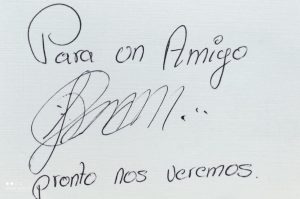 Para un Amigo
pronto nos veremos.